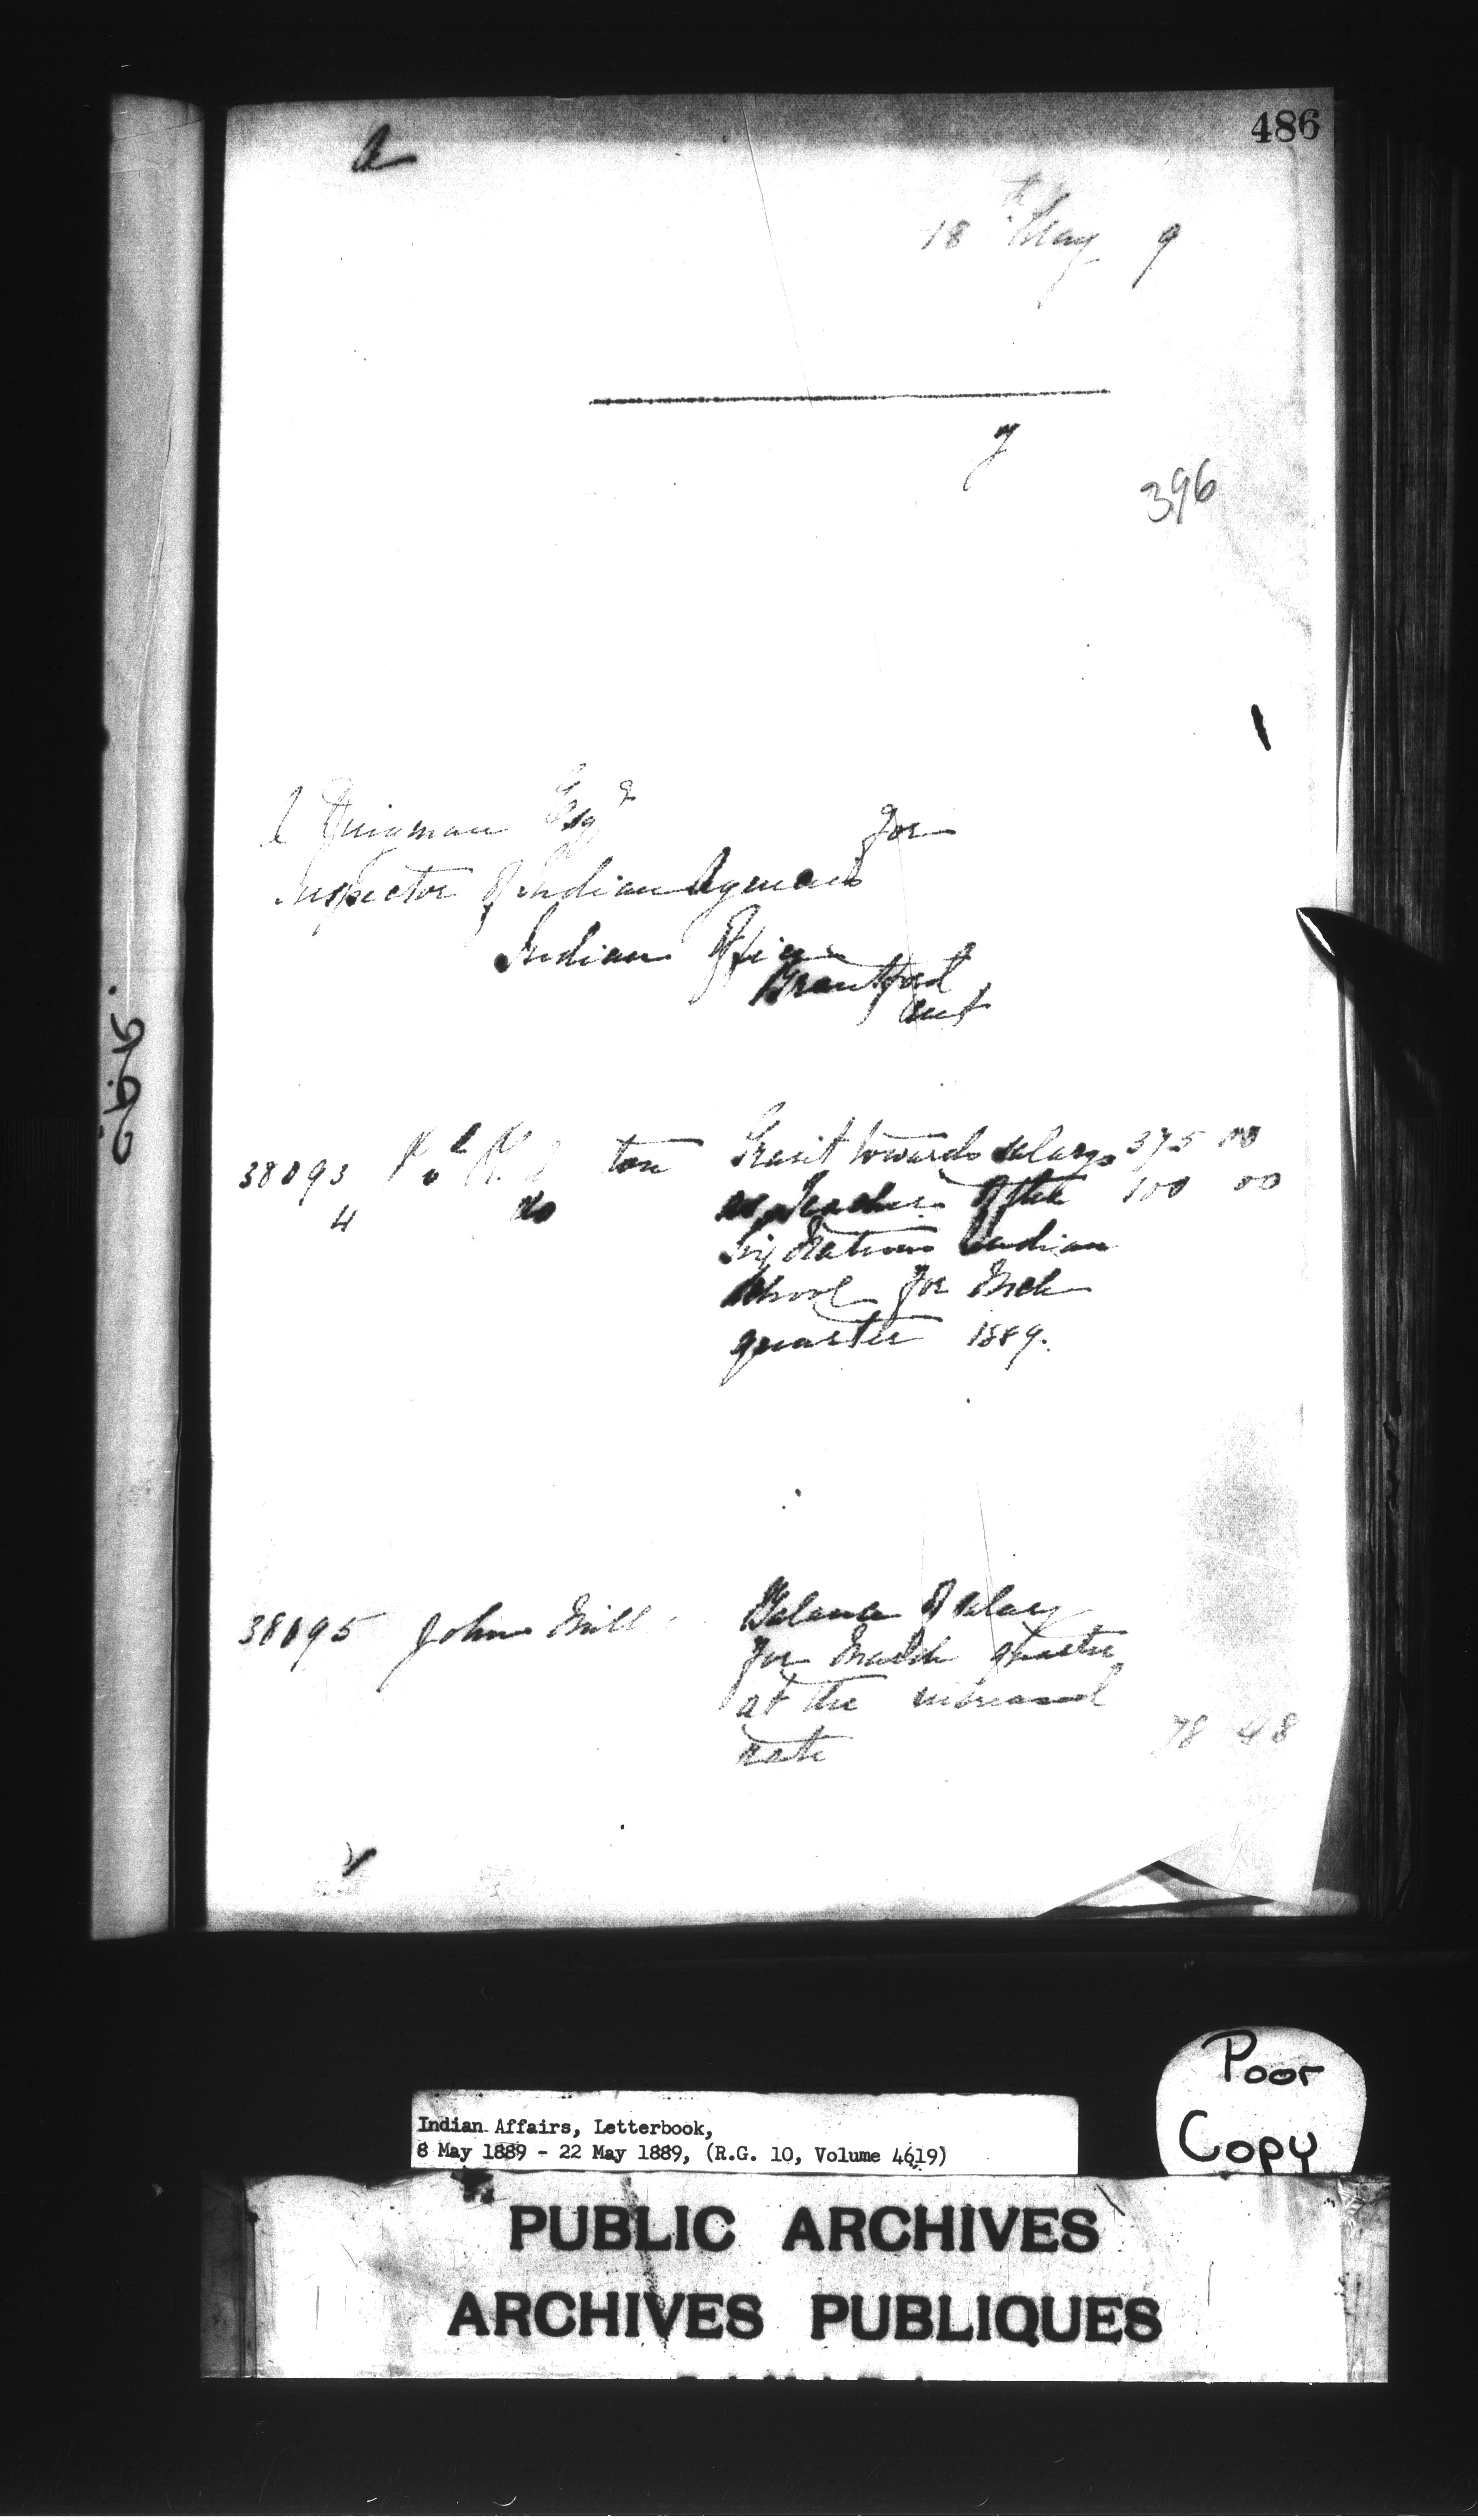 486
18th May 9
396
Dingman Esqr
for
Inspector of Indian Agencies
Indian Office
Brantford
Ont
38093 ton Grant towards salary 375 00
4 do as Teacher of the 100 00
Six Nations Indian
School for Mch
quarter 1889.
38095 John Mill Balance of salary
for March quarter
at the increased
rate 78 48
Poor
Copy
Indian Affairs, Letterbook,
8 May 1889 - 22 May 1889, (R.G. 10, Volume 4619)
PUBLIC ARCHIVES
ARCHIVES PUBLIQUES